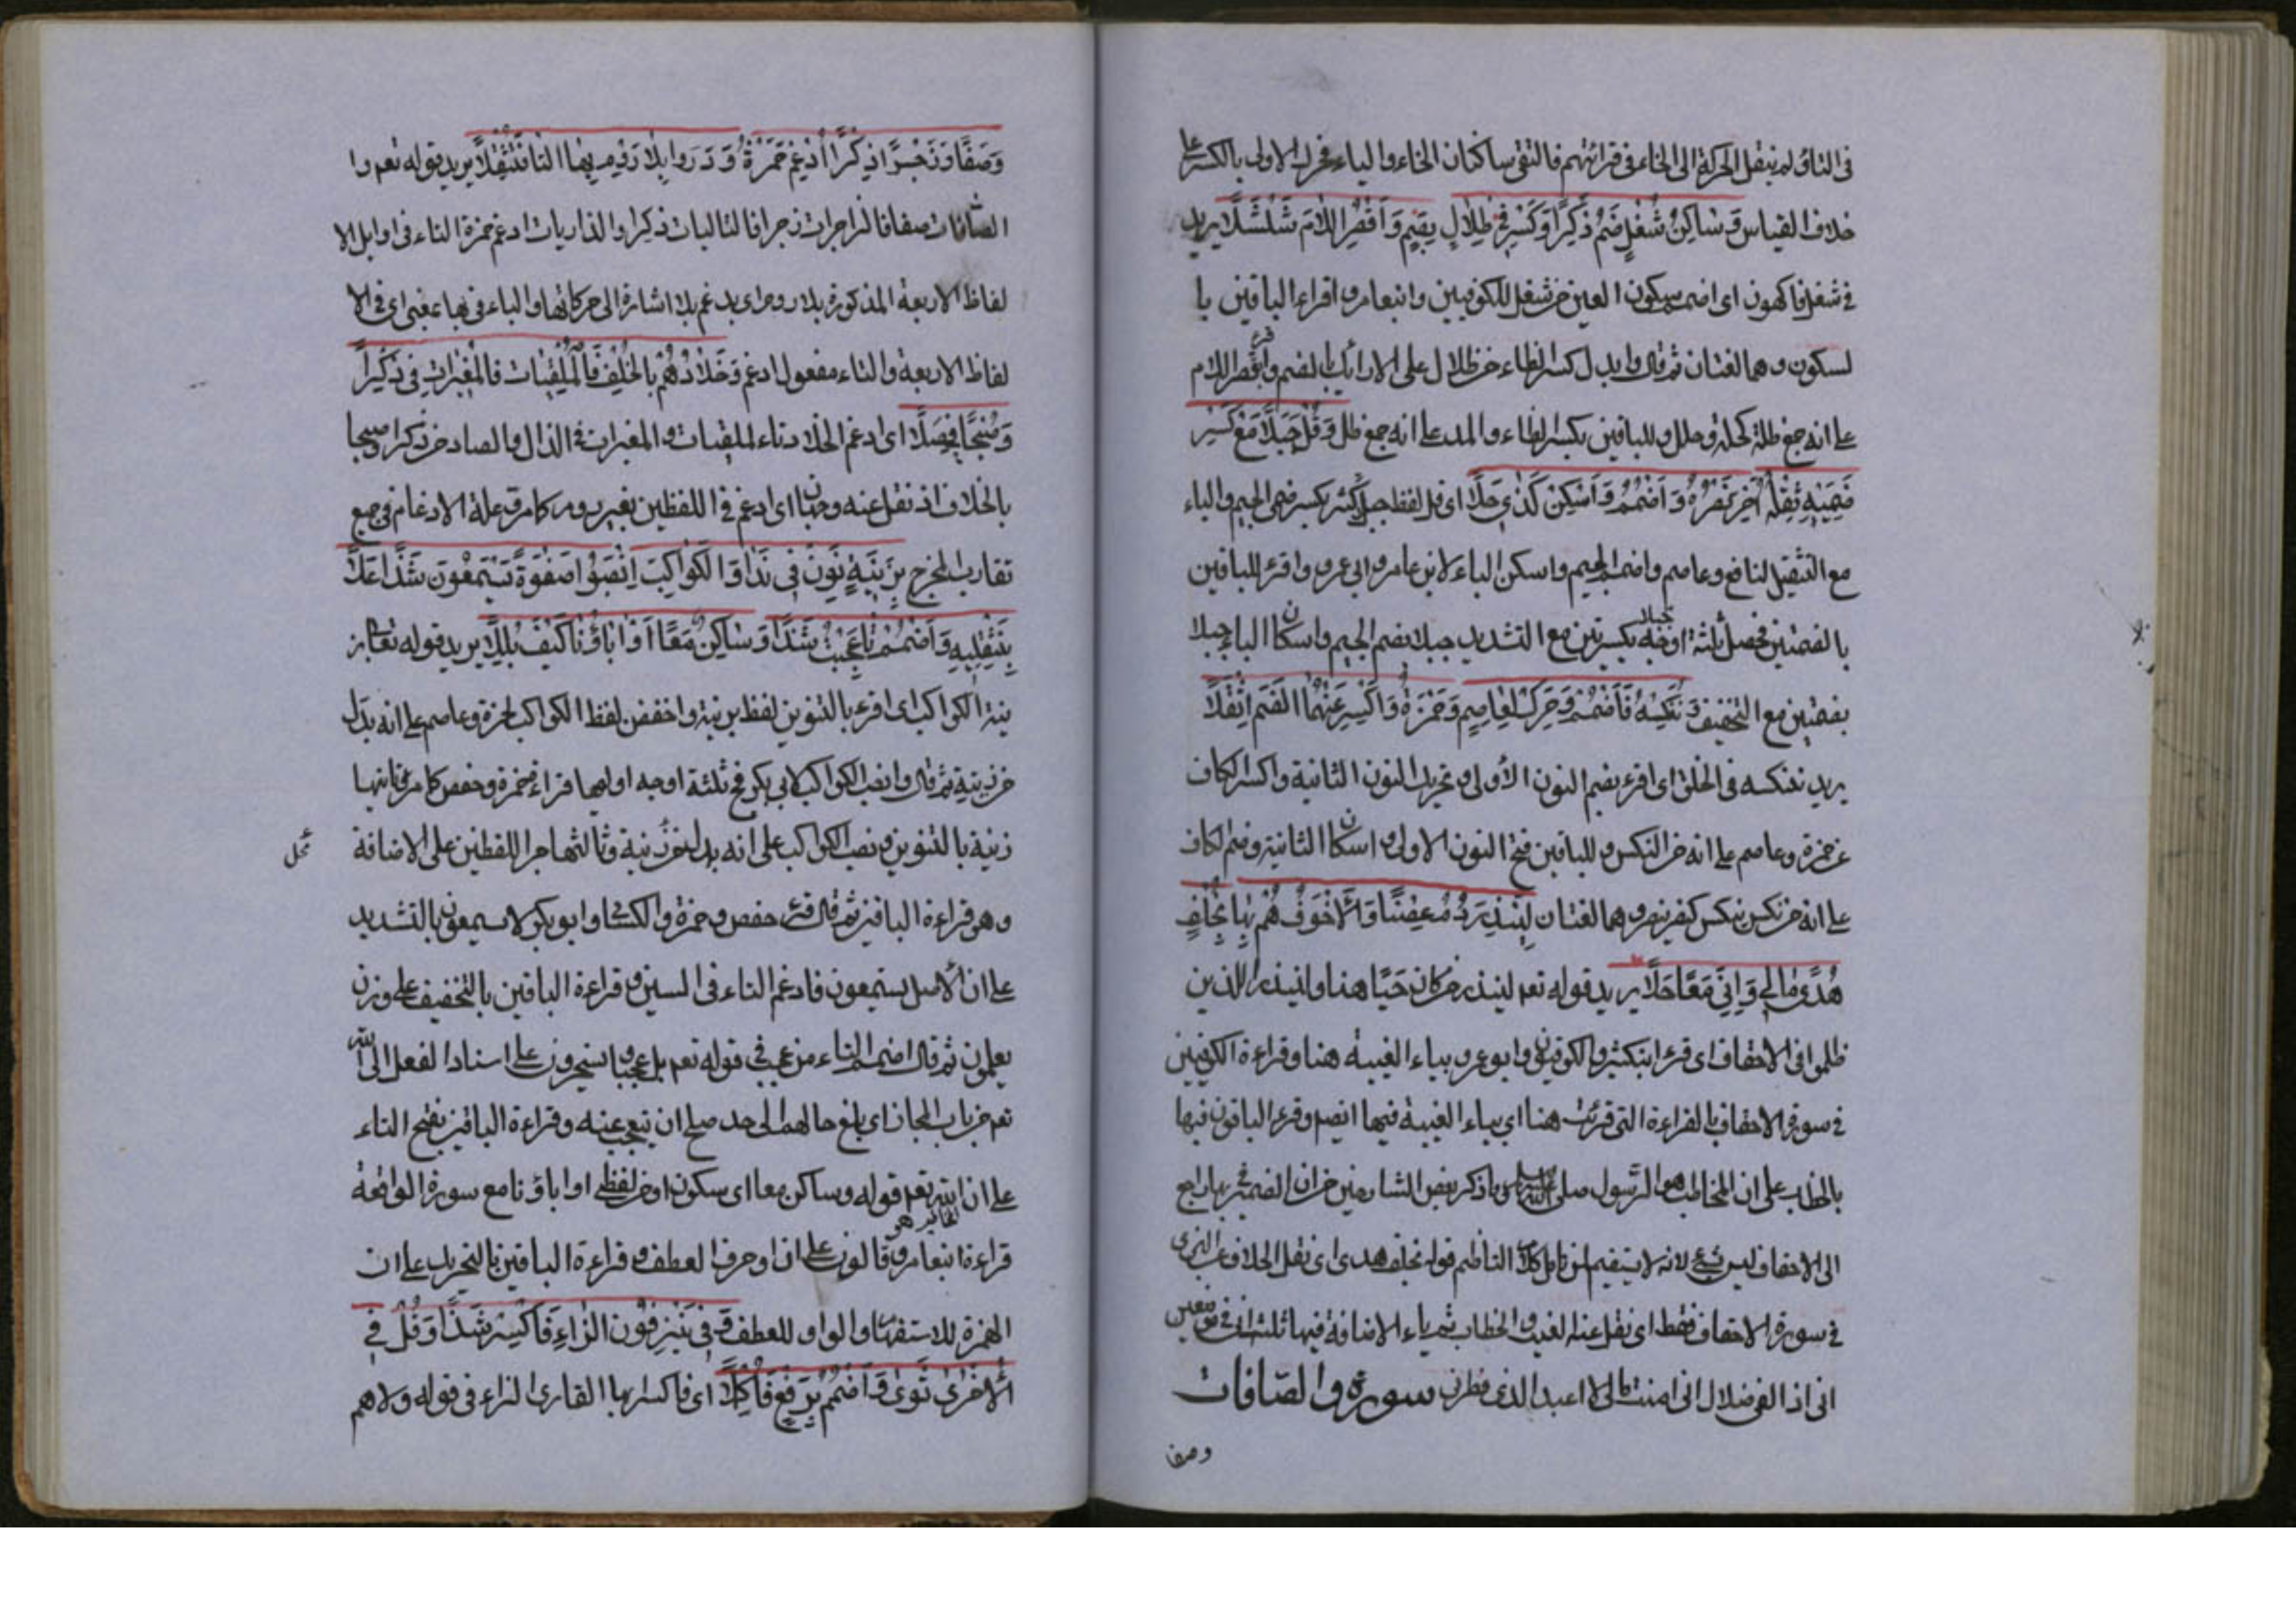 فى التاؤ لم ينقل الحركة الى الخاء فى قرائتهم فالتقى ساكنان الخاء والياء فحرك الاولى بالكسر على
خلاف القياس وَسَاكِنُ شُغْلٍ ضُمَّ ذِكْرًا وَكَسْرُ فِى ظِلَالٍ بِضَمٍّ وَاَقْصُرِ اللَّامَ شُلْشُلًا يريد
فى شغل فاكهون اى اضمم سكون العين من شغل للكوفيين وابنعامر واقراء الباقين با
لسكون وهما لغتان ثم قال وابدل كسر الظاء من ظلال على الارائك بالضم واقصر اللام
على انه جمع ظلة كحلة وحلل وللباقين بكسر الظاء والمد على انه جمع ظل وَقُلْ جُبُلًا مَعْ كَسْرِ
ضَمَّيْهِ ثِقْلُهُ اَخُو نُصْرَةٍ وَاَضْمُمْ وَاَسْكِنْ كَذِى حَلَا اى قل لفظ جبلا كثيرا بكسر ضمى الجيم والباء
مع التثقيل لنافع وعاصم واضمم الجيم واسكن الباء لابن عامر وابى عمرو واقرء للباقين
بالضمتين فحصل ثلثة اوجه جبلا بكسرتين مع التشديد جبلا بضم الجيم واسكان الباء جبلا
بضمتين مع التخفيف وَنَنْكُسْهُ فَاَضْمُمْهُ وَحَرِّكْ لِعَاصِمٍ وَحَمْزَةَ وَاَكْسِرْ عَنْهُمَا الضَّمَّ اَثْقَلَا
يريد ننكسه فى الخلق اى اقرء بضم النون الأولى وتحريك النون الثانية واكسر الكاف
عن حمزة وعاصم على انه من النكس وللباقين فتح النون الاولى واسكان الثانية وضم الكاف
على انه من نكس ينكس كنصر ينصر وهما لغتان لِيُنْذِرَ دُمْ غُصْنًا وَالْاَحْقَافُ هُمْ بِهَا بِخُلْفٍ
هُدًى مَالِى وَاِنِّى مَعًا حَلَا يريد قوله تعم لينذر من كان حَيًّا هنا ولينذر الذين
ظلموا فى الاحقاف اى قرء ابنكثير والكوفيون وابو عمرو بياء الغيبة هنا وقراءة الكوفيين
فى سورة الاحقاف بالقراءة التى قرئت هنا اى بياء الغيبة فيها ايضم وقرء الباقون فيها
بالخطاب على ان المخاطب هو الرَّسول صلى الله عليه وسلم وما ذكر بعض الشارحين من ان الضمير فى بها راجع
الى الاحقاف ليس بشئ لانه لا يستقيم لمن تامل كلام الناظم قوله بخلف هدى اى نقل الخلاف عن البزى
فى سورة الاحقاف فقط اى نقل عنه الغيب والخطاب ثم ياء الاضافة فيها ثلث انى فى موضعين
انى اذا لفى ضلال انى امنت مالى لا اعبد الذى فطرنى سورة والصافات
وصفا
وَصَفًّا وَزَجْرًا ذِكْرًا اَدْغَمَ حَمْزَةٌ وَذَرْوًا بِلَا رَوْمٍ بِهَا التَّا فَثَقَّلَا يريد قوله تعم وا
الصَّافات صفا فالزاجرات زجرا فالتاليات ذكرا والذاريات ادغم حمزة التاء فى اوايل الا
لفاظ الاربعة المذكورة بلا روم اى يدغم بلا اشارة الى حركاتها والباء فى بها بمعنى اى فى الا
لفاظ الاربعة والتاء مفعول ادغم وَخَلَّادُهُمْ بِالْخُلْفِ فَالْمُلْقِيَاتِ فَالْمُغِيرَاتِ فِى ذِكْرًا
وَصُبْحًا فَحَصِّلَا اى ادغم الخلاد تاء الملقيات والمغيرات فى الذال والصاد من ذكرا وصبحا
بالخلاف اذ نقل عنه وجهان اى ادغم فى اللفظين بغير روم كما مر وعلة الادغام فى جميع
تقارب المخرج بِزِينَةِ نَوِّنْ فِى نَدٍ وَالْكَوَاكِبِ اَنْصِبُوا صَفْوَةً يَسَّمَّعُونَ شَذًا عَلَا
بِثِقْلَيْهِ وَاَضْمُمْ تَا عَجِبْتَ شَذًا وَسَاكِنٌ مَعًا اَوْ اٰبَاؤُنَا كَيْفَ بَلَّلَا يريد قوله تعالى بز
ينة الكواكب اى اقرء بالتنوين لفظ بزينة واخفض لفظ الكواكب لحمزة وعاصم على انه بدل
من زينة ثم قال وانصب الكواكب لابى بكر فخ ثلثة اوجه اوليها قراءة حمزة وحفص كما مر وثانيها
زينة بالتنوين ونصب الكواكب على انه بدل من زينة وثالثها جر اللفظين على الاضافة
محل
وهو قراءة الباقين ثم قال قرء حفص وحمزة والكسائى وابو بكر لا يسمعون بالتشديد
على ان الأصل يستمعون فادغم التاء فى السين وقراءة الباقين بالتخفيف على وزن
يعلمون ثم قال اضمم التاء من عجبت فى قوله تعم بل عجبت ويسخرون على اسناد الفعل الى الله
تعم من باب المجاز اى بلغ حالهم الى حد صلح ان يتعجب عنه وقراءة الباقين بفتح التاء
على ان المخاطب هو النبى قوله وساكن معا اى سكون او من لفظى او اباؤنا مع سورة الواقعة
قراءة ابنعامر وقالون على ان او حرف العطف وقراءة الباقين بالتحريك على ان
الهمزة للاستفهام والواو للعطف وَفِى يُنْزِفُونَ الزَّاىَ فَاكْسِرْ شَذًا وَقُلْ فِى
الْاُخْرٰى ثَوٰى وَاَضْمُمْ يَزِفُّونَ فَاَكْمِلَا اى فاكسر ايها القارى الزاء فى قوله ولا هم